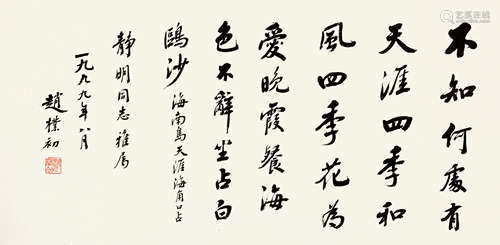 不知何處有
天涯四季和
風四季花為
愛晚霞餐海
色不辭坐占白
鷗沙 海南島天涯海角口占
靜明同志雅屬
一九九九年八月
趙樸初